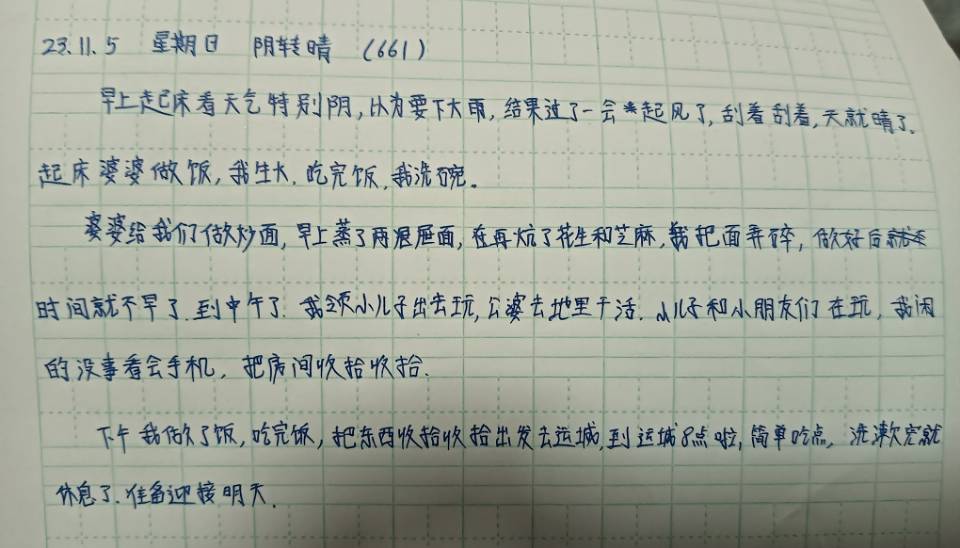 23.11.5 星期日 阴转晴 (661)
早上起床看天气特别阴,以为要下大雨,结果过了一会起风了,刮着刮着,天就晴了。
起床婆婆做饭,我生火.吃完饭,我洗碗。
婆婆给我们做炒面,早上蒸了两混屉面,在再炕了花生和芝麻,我把面弄碎,做好后
时间就不早了.到中午了.我领小儿子出去玩,公婆去地里干活.小儿子和小朋友们在玩,我闲
的没事看会手机,把房间收拾收拾.
下午我做了饭,吃完饭,把东西收拾收拾出发去运城,到运城8点啦,简单吃点,洗漱完就
休息了.准备迎接明天.